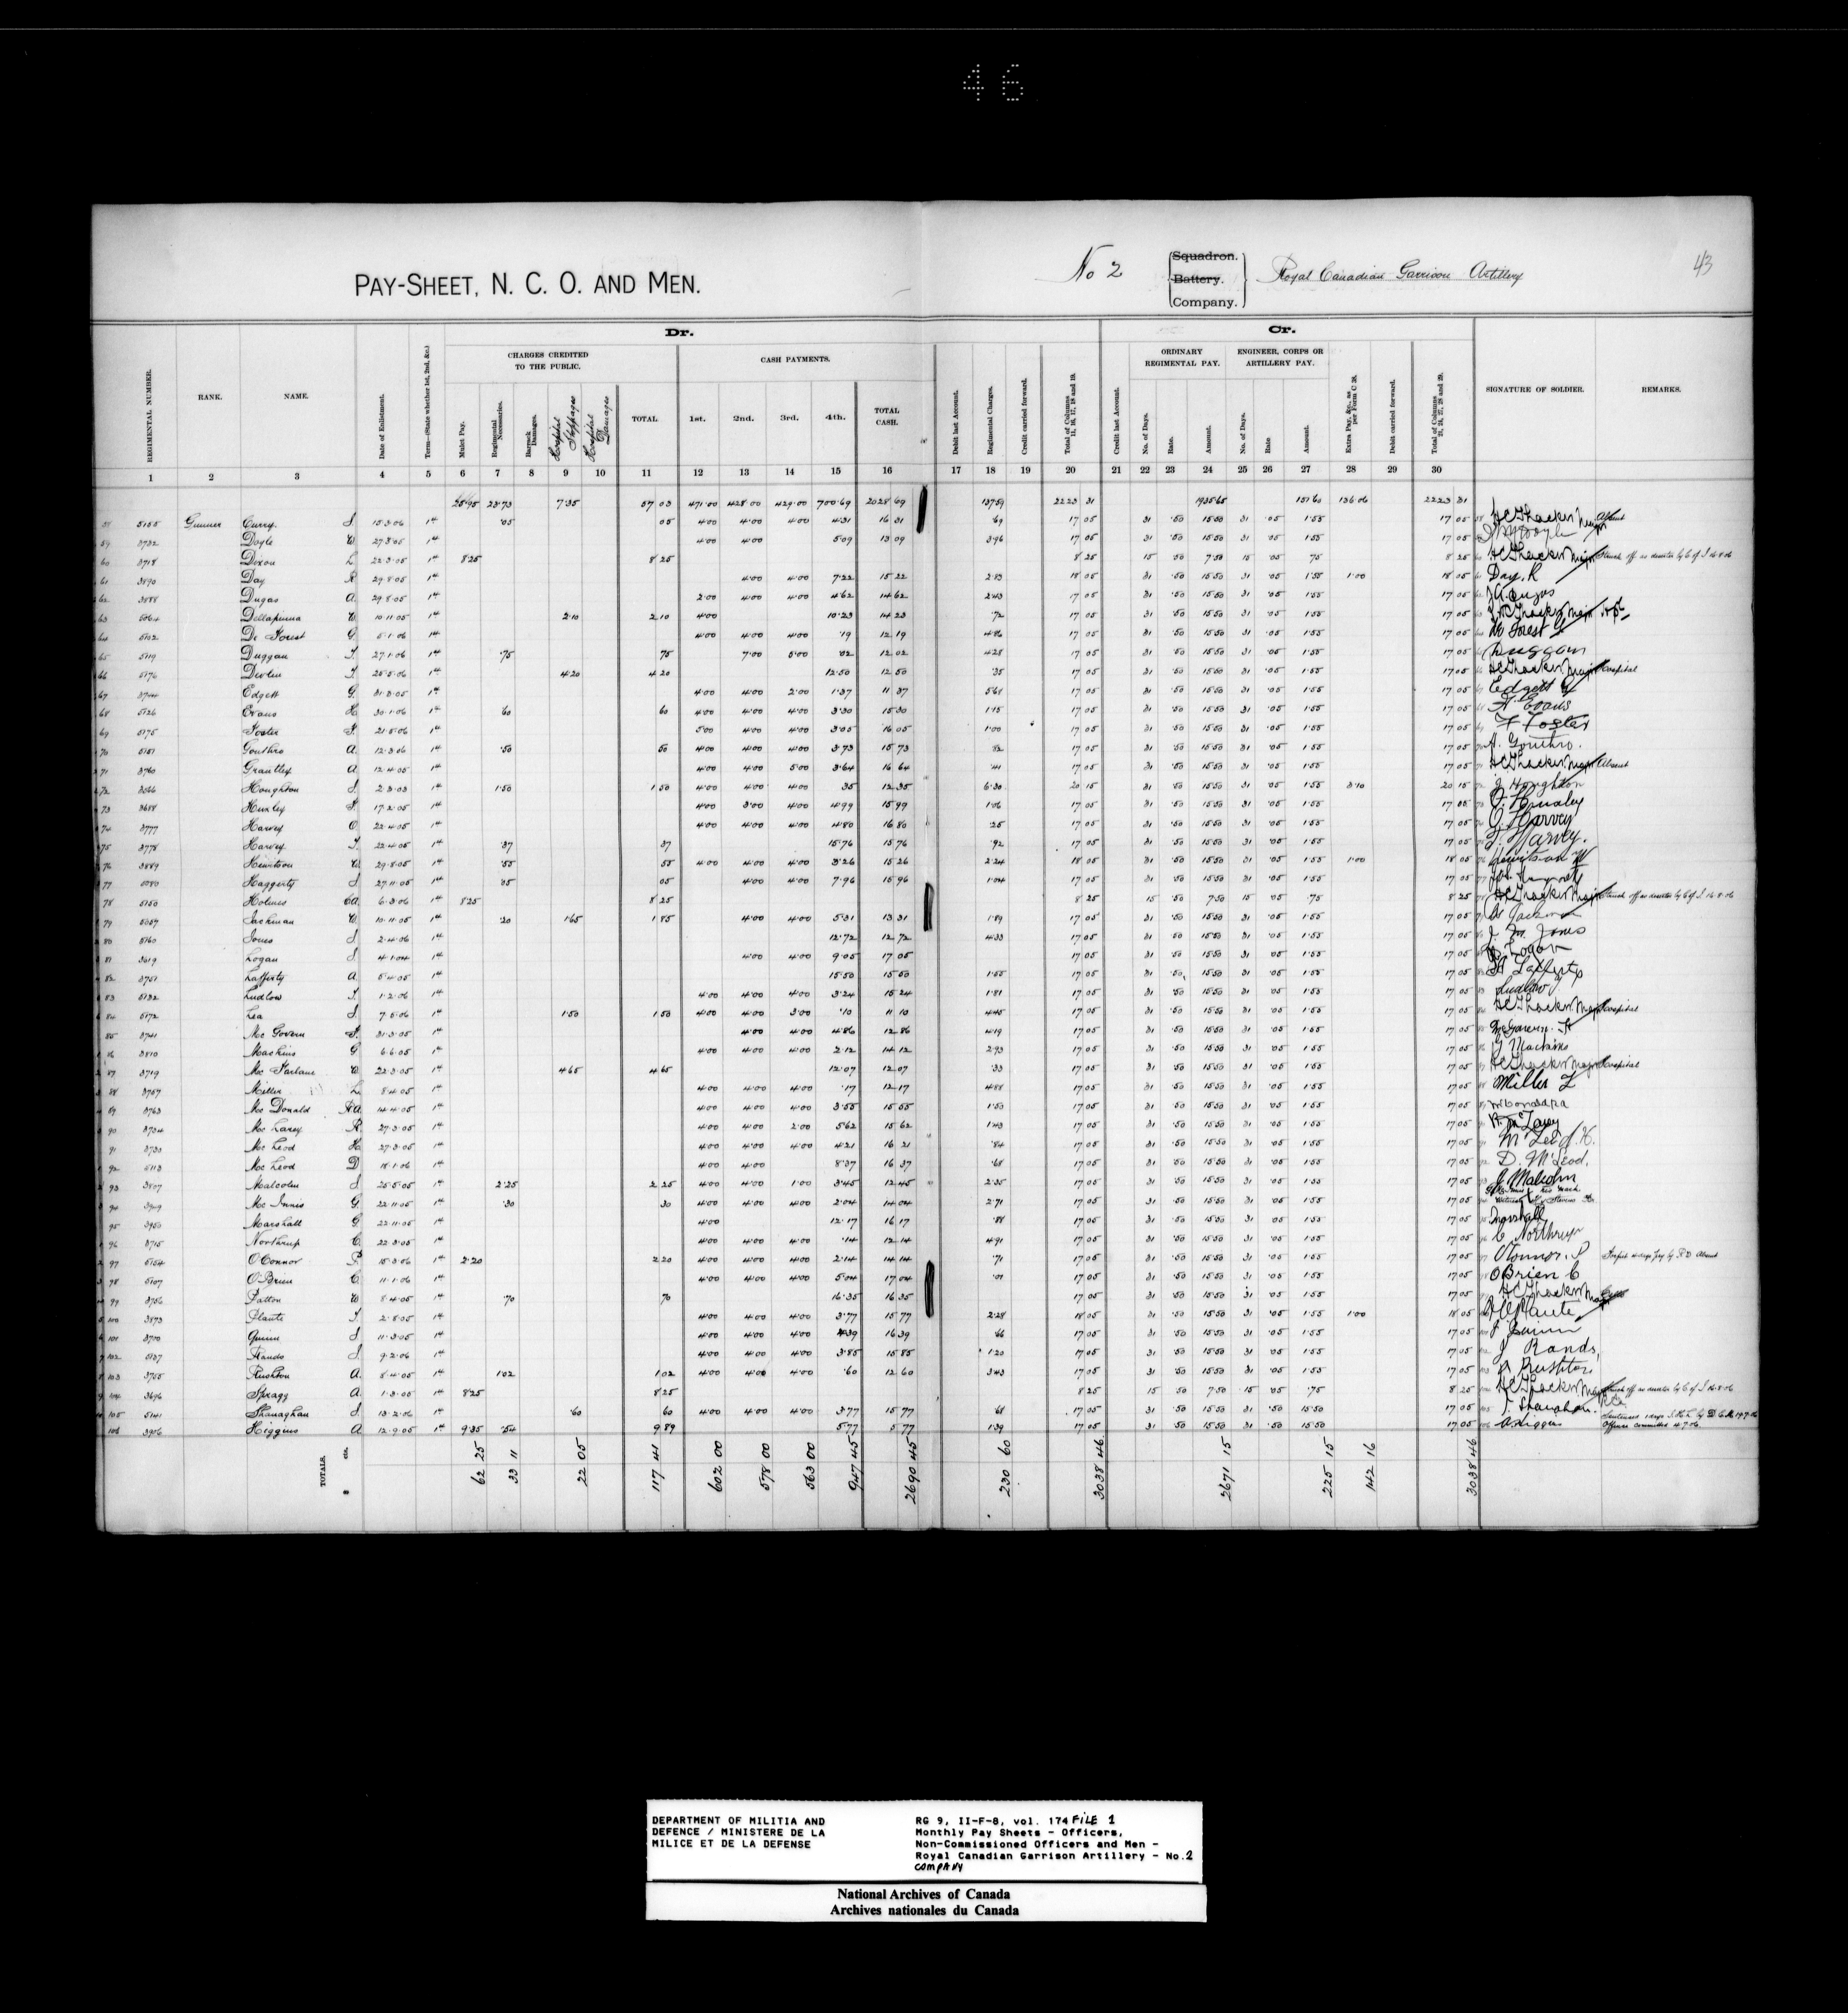 46
PAY-SHEET, N. C. O. AND MEN.
No 2 Squadron. Battery. Company. Royal Canadian Garrison Artillery 43
Dr. Cr.
CHARGES CREDITED TO THE PUBLIC. CASH PAYMENTS. ORDINARY REGIMENTAL PAY. ENGINEER, CORPS OR ARTILLERY PAY.
REGIMENTAL NUMBER. RANK. NAME. Date of Enlistment. Term—(State whether 1st, 2nd, &c.) Mulct Pay. Regimental Necessaries. Barrack Damages. Hospital Stoppages Hospital Damages TOTAL. 1st. 2nd. 3rd. 4th. TOTAL CASH. Debit last Account. Regimental Charges. Credit carried forward. Total of Columns 11, 16, 17, 18 and 19. Credit last Account. No. of Days. Rate. Amount. No. of Days. Rate Amount. Extra Pay, &c., as per Form C 38. Debit carried forward. Total of Columns 21, 24, 27, 28 and 29. SIGNATURE OF SOLDIER. REMARKS.
1 2 3 4 5 6 7 8 9 10 11 12 13 14 15 16 17 18 19 20 21 22 23 24 25 26 27 28 29 30
23.73 7.35 57 03 471.00 428.00 429.00 700.69 2028 69 137.59 2223 31 1935.65 151.60 136.06 2223 31
58 5155 Gunner Curry J 15.3.06 1st .05 05 4.00 4.00 4.00 4.31 16 31 .69 17 05 31 .50 15.50 31 .05 1.55 17 05 H C Thacker Major Absent
59 3732 Doyle W 27.3.05 1st 4.00 4.00 5.09 13 09 3.96 17 05 31 .50 15.50 31 .05 1.55 17 05
60 3718 Dixon L 22.3.05 1st 8.25 8 25 8 25 15 .50 7.50 15 .05 .75 8 25 H C Thacker Major Struck off as deserter by C of I 16.8.06
61 3890 Day R 29.8.05 1st 4.00 4.00 7.22 15 22 2.83 18 05 31 .50 15.50 31 .05 1.55 1.00 18 05 Day. R
62 3888 Dugas A. 29.8.05 1st 2.00 4.00 4.00 4.62 14 62 2.43 17 05 31 .50 15.50 31 .05 1.55 17 05
63 5064 Dellapinna W 10.11.05 1st 2.10 2 10 4.00 10.23 14 23 .72 17 05 31 .50 15.50 31 .05 1.55 17 05 H C Thacker Major
64 5102 De Forest G. 5.1.06 1st 4.00 4.00 4.00 .19 12 19 4.86 17 05 31 .50 15.50 31 .05 1.55 17 05
65 5119 Duggan T. 27.1.06 1st .75 75 7.00 5.00 .02 12 02 4.28 17 05 31 .50 15.50 31 .05 1.55 17 05 Duggan
66 5176 Devlin T 25.5.06 1st 4.20 4 20 12.50 12 50 .35 17 05 31 .50 15.50 31 .05 1.55 17 05 H C Thacker Major Hospital
67 3744 Edgett G. 31.3.05 1st 4.00 4.00 2.00 1.37 11 37 5.68 17 05 31 .50 15.50 31 .05 1.55 17 05 Edgett G
68 5126 Evans H. 30.1.06 1st .60 60 4.00 4.00 4.00 3.30 15 30 1.15 17 05 31 .50 15.50 31 .05 1.55 17 05 H. Evans
69 5175 Foster F. 21.5.06 1st 5.00 4.00 4.00 3.05 16 05 1.00 17 05 31 .50 15.50 31 .05 1.55 17 05 F Foster
70 5151 Gouthro A. 12.3.06 1st .50 50 4.00 4.00 4.00 3.73 15 73 .82 17 05 31 .50 15.50 31 .05 1.55 17 05 A. Gouthro.
71 3760 Grantley A 12.4.05 1st 4.00 4.00 5.00 3.64 16 64 .41 17 05 31 .50 15.50 31 .05 1.55 17 05 H C Thacker Major Absent
72 3066 Houghton J 2.3.03 1st 1.50 1 50 4.00 4.00 4.00 35 12.35 6.30 20 15 31 .50 15.50 31 .05 1.55 3.10 20 15 J Houghton
73 3688 Huxley F. 17.2.05 1st 4.00 3.00 4.00 4.99 15 99 1.06 17 05 31 .50 15.50 31 .05 1.55 17 05
74 3777 Harvey O. 22.4.05 1st 4.00 4.00 4.00 4.80 16 80 .25 17 05 31 .50 15.50 31 .05 1.55 17 05 O Harvey
75 3778 Harvey T. 22.4.05 1st .37 37 15.76 15 76 .92 17 05 31 .50 15.50 31 .05 1.55 17 05 T. Harvey.
76 3889 Hewitson W 29.8.05 1st .55 55 4.00 4.00 4.00 3.26 15 26 2.24 18 05 31 .50 15.50 31 .05 1.55 1.00 18 05 Hewitson W
77 5080 Haggerty J 27.11.05 1st .05 05 4.00 4.00 7.96 15 96 1.04 17 05 31 .50 15.50 31 .05 1.55 17 05
78 5150 Holmes CA. 6.3.06 1st 8.25 8 25 8 25 15 .50 7.50 15 .05 .75 8 25 H C Thacker Major Struck off as deserter by C of I 16.8.06
79 5057 Jackman W. 10.11.05 1st .20 1.65 1 85 4.00 4.00 5.31 13 31 1.89 17 05 31 .50 15.50 31 .05 1.55 17 05
80 5160 Jones J 2.4.06 1st 12.72 12 72 4.33 17 05 31 .50 15.50 31 .05 1.55 17 05 J. M. Jones
81 3619 Logan J 4.1.04 1st 4.00 4.00 9.05 17 05 17 05 31 .50 15.50 31 .05 1.55 17 05 Logan
82 3751 Lafferty A 5.4.05 1st 15.50 15 50 1.55 17 05 31 .50 15.50 31 .05 1.55 17 05 A Lafferty
83 5132 Ludlow T. 1.2.06 1st 4.00 4.00 4.00 3.24 15 24 1.81 17 05 31 .50 15.50 31 .05 1.55 17 05 Ludlow J
84 5172 Lea J 7.5.06 1st 1.50 1 50 4.00 4.00 3.00 .10 11 10 4.45 17 05 31 .50 15.50 31 .05 1.55 17 05 H C Thacker Major Hospital
85 3741 Mc Govern F. 31.3.05 1st 4.00 4.00 4.86 12 86 4.19 17 05 31 .50 15.50 31 .05 1.55 17 05
86 3810 Machins G 6.6.05 1st 4.00 4.00 4.00 2.12 14 12 2.93 17 05 31 .50 15.50 31 .05 1.55 17 05 G Machins
87 3719 Mc Farlane W. 22.3.05 1st 4.65 4 65 12.07 12 07 .33 17 05 31 .50 15.50 31 .05 1.55 17 05 H C Thacker Major Hospital
88 3757 Miller L 8.4.05 1st 4.00 4.00 4.00 .17 12 17 4.88 17 05 31 .50 15.50 31 .05 1.55 17 05 Miller L
89 3763 Mc Donald R A 14.4.05 1st 4.00 4.00 4.00 3.55 15 55 1.50 17 05 31 .50 15.50 31 .05 1.55 17 05
90 3734 Mc Larey R. 27.3.05 1st 4.00 4.00 2.00 5.62 15 62 1.43 17 05 31 .50 15.50 31 .05 1.55 17 05
91 3733 Mc Leod H. 27.3.05 1st 4.00 4.00 4.00 4.21 16 21 .84 17 05 31 .50 15.50 31 .05 1.55 17 05 McLeod. H.
92 5113 Mc Leod D 18.1.06 1st 4.00 4.00 8.37 16 37 .68 17 05 31 .50 15.50 31 .05 1.55 17 05 D. McLeod.
93 3807 Malcolm J 25.5.05 1st 2.25 2 25 4.00 4.00 1.00 3.45 12 45 2.35 17 05 31 .50 15.50 31 .05 1.55 17 05 J Malcolm
94 3949 Mc Innis G. 22.11.05 1st .30 30 4.00 4.00 4.00 2.04 14 04 2.71 17 05 31 .50 15.50 31 .05 1.55 17 05 his mark
95 3950 Marshall G. 22.11.05 1st 4.00 12.17 16 17 .88 17 05 31 .50 15.50 31 .05 1.55 17 05 Marshall
96 3715 Northrup C. 22.3.05 1st 4.00 4.00 4.00 .14 12 14 4.91 17 05 31 .50 15.50 31 .05 1.55 17 05 C Northrup
97 5154 O'Connor P. 15.3.06 1st 2.20 2 20 4.00 4.00 4.00 2.14 14 14 .71 17 05 31 .50 15.50 31 .05 1.55 17 05 OConnor. P Forfeit 4 days Pay by R D Absent
98 5107 O'Brien C. 11.1.06 1st 4.00 4.00 4.00 5.04 17 04 .01 17 05 31 .50 15.50 31 .05 1.55 17 05 OBrien C
99 3756 Patton W 8.4.05 1st .70 70 16.35 16 35 17 05 31 .50 15.50 31 .05 1.55 17 05 H C Thacker Major
100 3873 Plante T. 2.8.05 1st 4.00 4.00 4.00 3.77 15 77 2.28 18 05 31 .50 15.50 31 .05 1.55 1.00 18 05 Plante
101 3700 Quinn J 11.3.05 1st 4.00 4.00 4.00 4.39 16 39 .66 17 05 31 .50 15.50 31 .05 1.55 17 05 J Quinn
102 5137 Rands J. 9.2.06 1st 4.00 4.00 4.00 3.85 15 85 1.20 17 05 31 .50 15.50 31 .05 1.55 17 05 J Rands,
103 3755 Rushton A. 8.4.05 1st 1.02 1 02 4.00 4.00 4.00 .60 12 60 3.43 17 05 31 .50 15.50 31 .05 1.55 17 05 A Rushton
104 3696 Spragg A. 1.3.05 1st 8.25 8 25 8 25 15 .50 7.50 15 .05 .75 8 25 H C Thacker Major Struck off as deserter by C of I 16.8.06
105 5141 Shanaghan J. 13.2.06 1st .60 60 4.00 4.00 4.00 3.77 15 77 .68 17 05 31 .50 15.50 31 .50 15.50 17 05
106 3906 Higgins A 12.9.05 1st 9.35 .54 9 89 5.77 5 77 1.39 17 05 31 .50 15.50 31 .50 15.50 17 05 A Higgins Offence committed 4.7.06.
TOTALS. $ cts. 62 25 33 11 22 05 117 41 602 00 578 00 563 00 947 45 2690 45 230 60 3038 46 2671 15 225 15 142 16 3038 46
DEPARTMENT OF MILITIA AND DEFENCE / MINISTERE DE LA MILICE ET DE LA DEFENSE
RG 9, II-F-8, vol. 174 FILE 1
Monthly Pay Sheets - Officers,
Non-Commissioned Officers and Men -
Royal Canadian Garrison Artillery - No.2
COMPANY
National Archives of Canada
Archives nationales du Canada